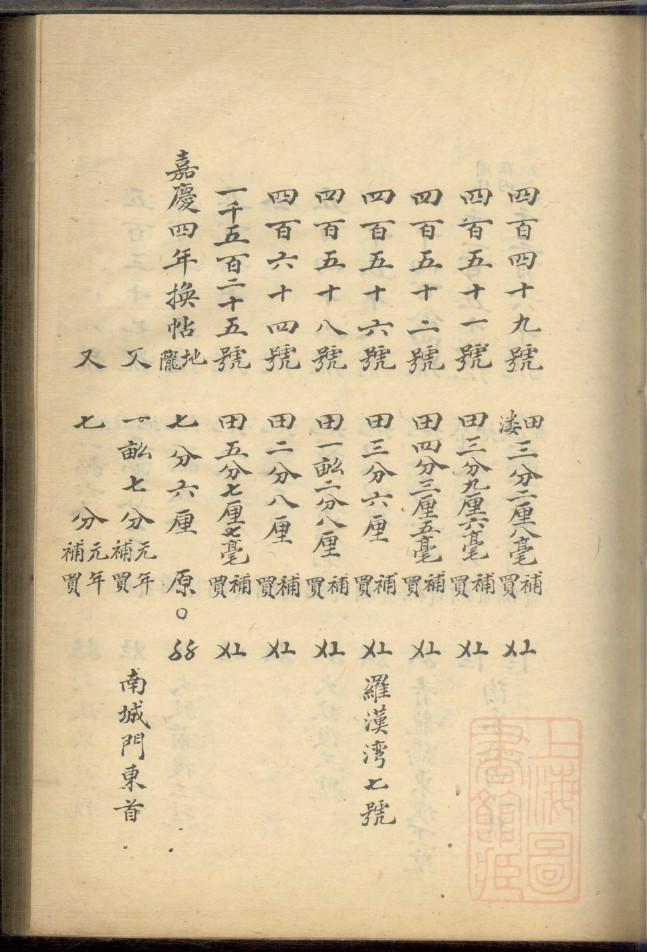 四百四十九號 田漊三分二厘八毫補買 〤〦
四百五十一號 田三分九厘六毫補買 〤〦
四百五十二號 田四分三厘五毫補買 〤〦
四百五十六號 田三分六厘 補買 〤〦 羅漢湾七號
四百五十八號 田一畝二分八厘補買 〤〦
四百六十四號 田二分八厘 補買 〤〦
一千五百二十五號 田五分七厘七毫補買 〤〦
嘉慶四年換帖地隴 七分六厘 原〇 〥〥
又 一畝七分元年補買 南城門東首
又 七分元年補買
上海圖書館藏